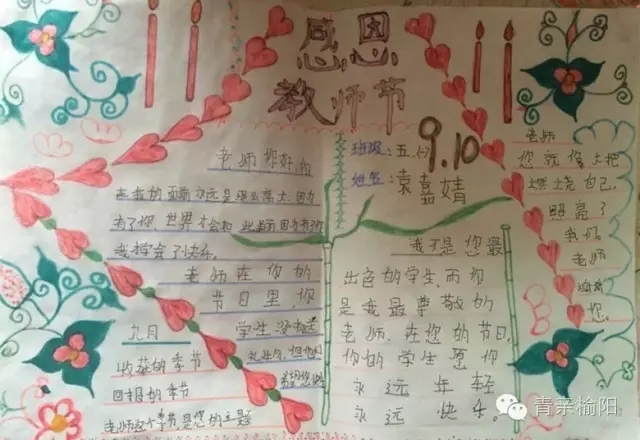 感恩
教师节
9.10
班级:五.(7)
姓名:袁嘉婧
老师你好,你
在我的面前永远是那么高大.因为
有了你.世界才会如此美丽.因为有你
我学会了快乐.
老师在你的
节日里,你
学生没有送
九月
收获的季节
回报的季节
老师这个季节是您的主题
我不是您最
出色的学生.而你
是我最尊敬的
老师.在您的节日.
你的学生愿你
永远年轻
永远快乐.
老师
您就像火把
燃烧自己
照亮了
我们
老师
谢谢
您.
青亲榆阳